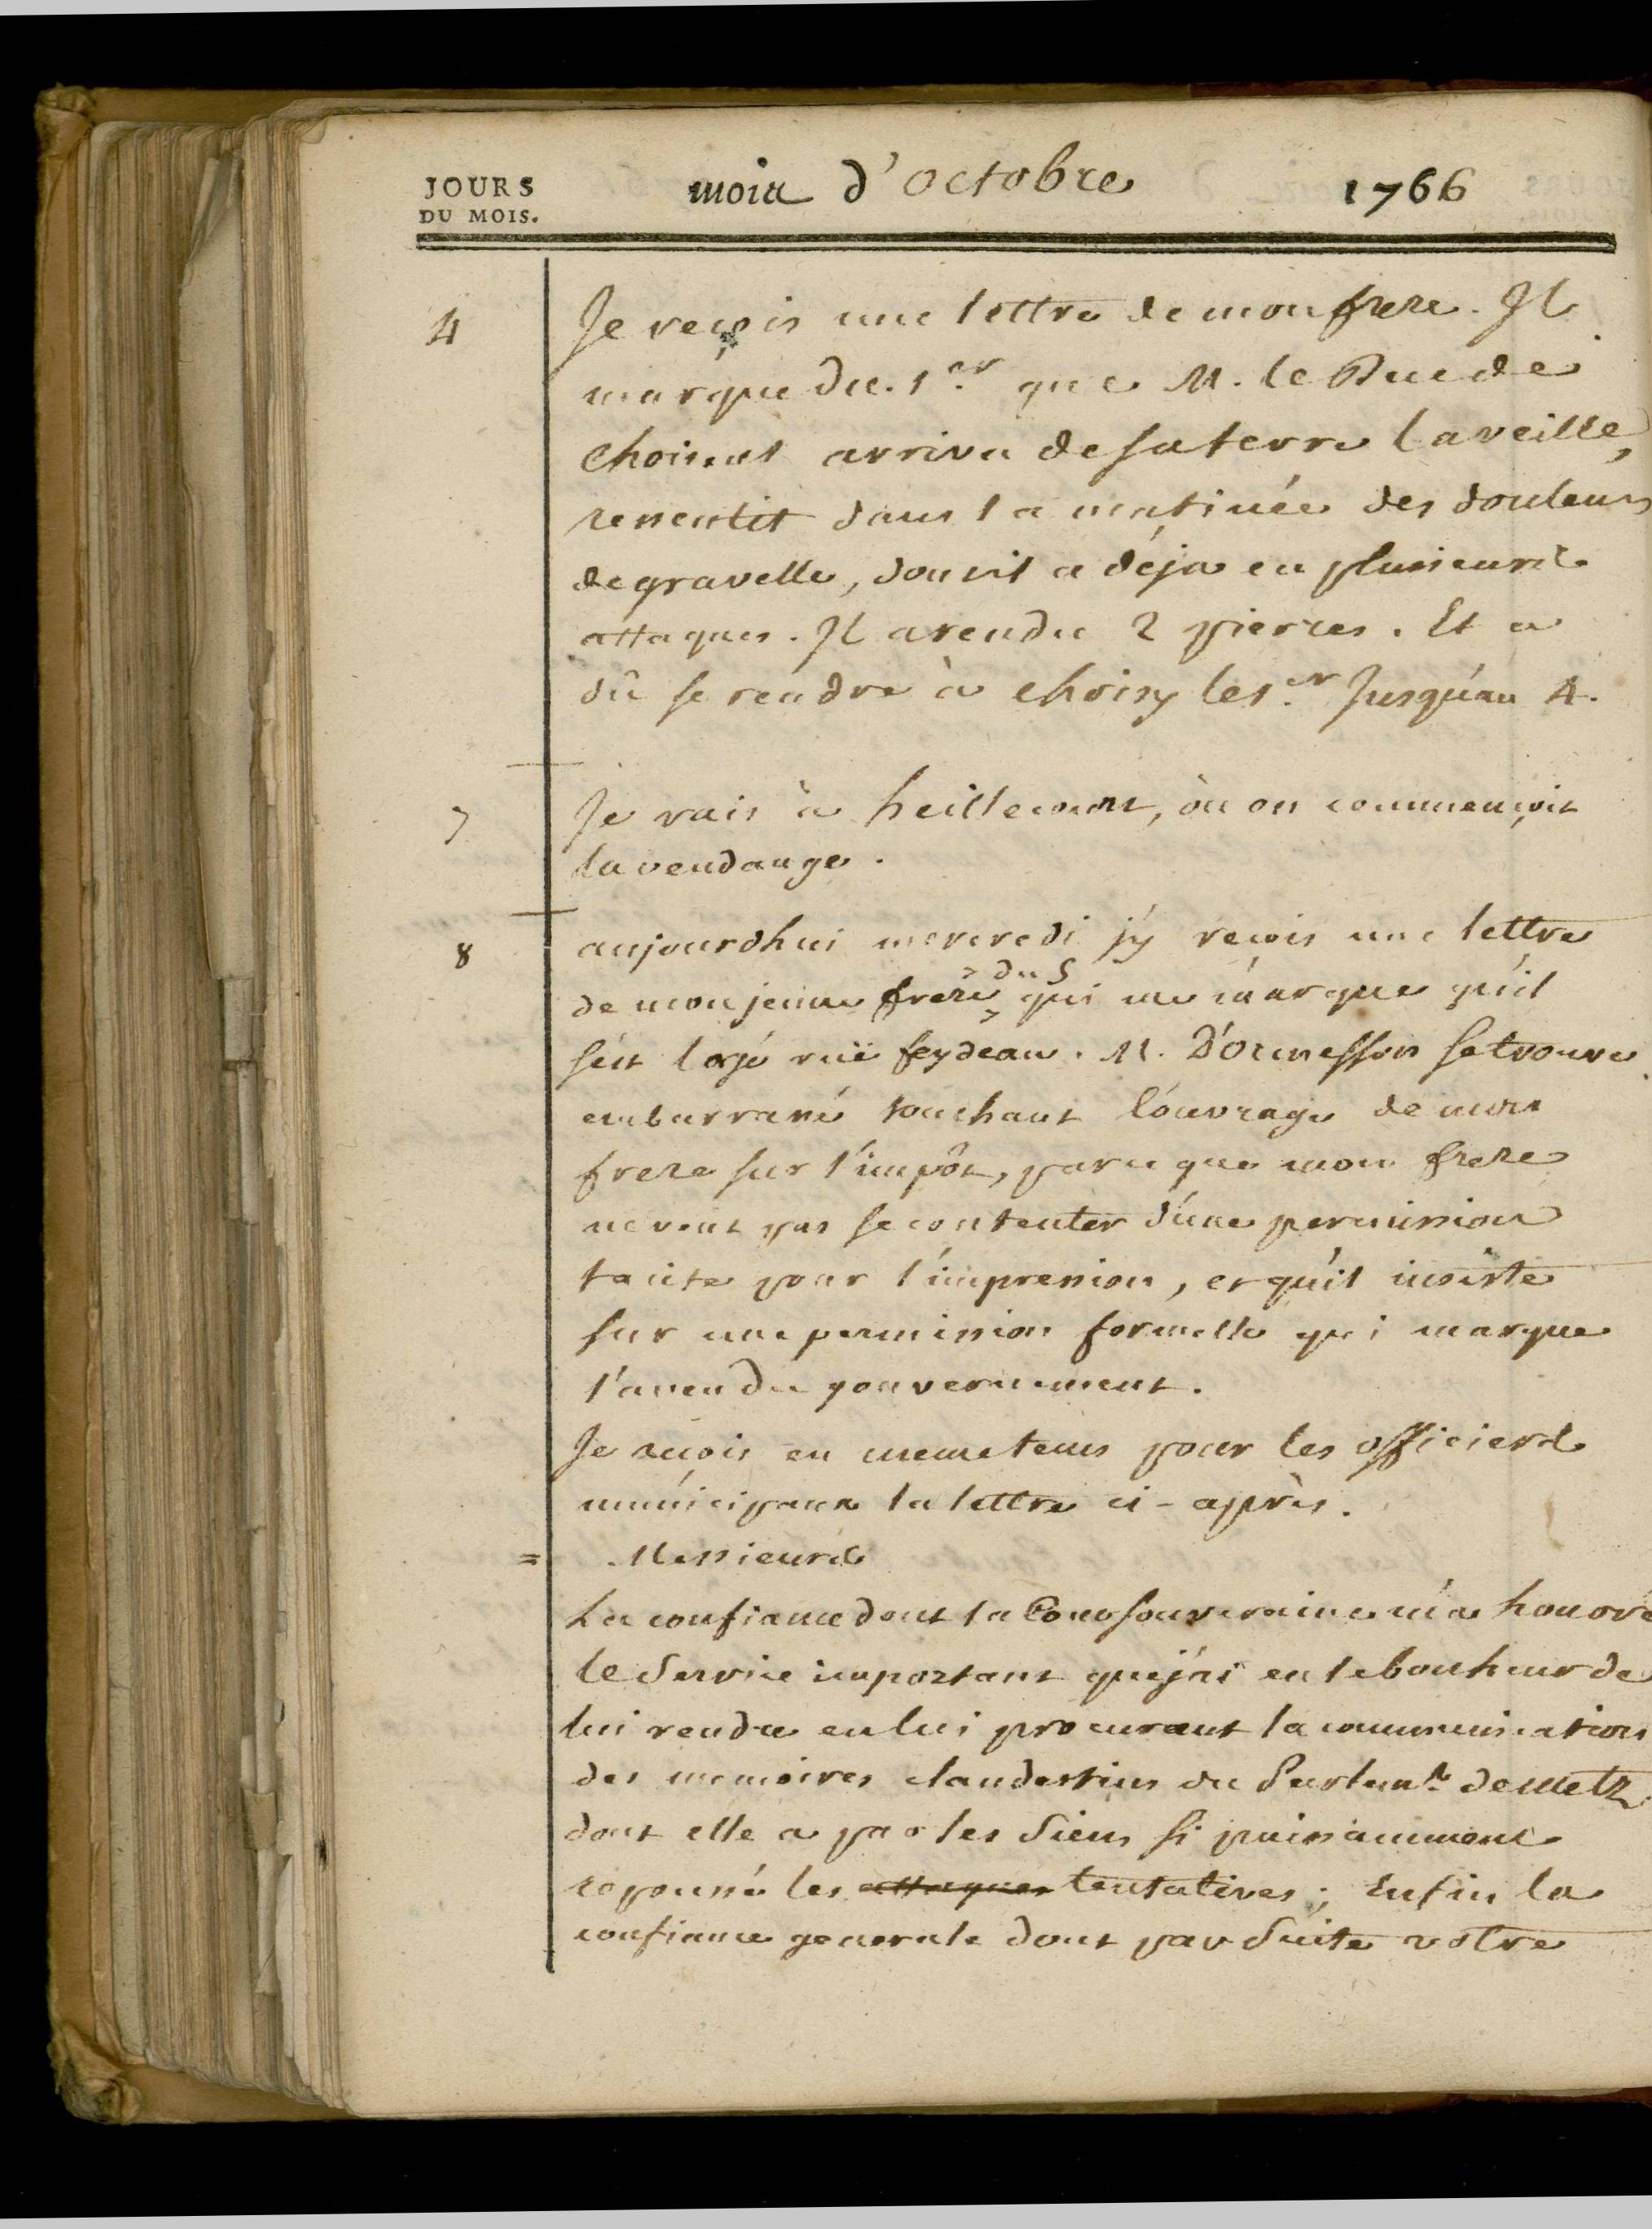 JOURS
DU MOIS.
mois d'octobre 1766
4 Je reçois une lettre de mon frere. Il
marque du 1.er que M. le Duc de
choiseul arrivé de sa terre la veille,
ressentit dans la matinée des douleurs
de gravelle, dont il a déja eu plusieurs
attaques. Il a rendu 2 pierres. Et a
dû se rendre à choisy le 1.er jusqu'au 4.
7 Je vais à heillecourt, où on commençoit
la vendange.
8 aujourdhui mercredi j'y reçois une lettre
de mon jeune frere, du 5, qui me marque qu'il
s'est logé ruë feydeau. M. D'Ormesson se trouve
embarrassé touchant l'ouvrage de mon
frere sur l'impôt, parce que mon frere
ne veut pas se contenter d'une permission
tacite pour l'impression, et qu'il insiste
sur une permission formelle qui marque
l'aveu du gouvernement.
Je reçois en meme tems pour les officiers
municipaux la lettre ci-après.
= Messieurs
La confiance dont la Cour souveraine m'a honoré
le Service important que j'ai eu le bonheur de
lui rendre en lui procurant la communication
des memoires clandestins du Parlem.t de Metz
dont elle a par les Siens si puissamment
repoussé les attaques tentatives; Enfin la
confiance generale dont par Suite votre